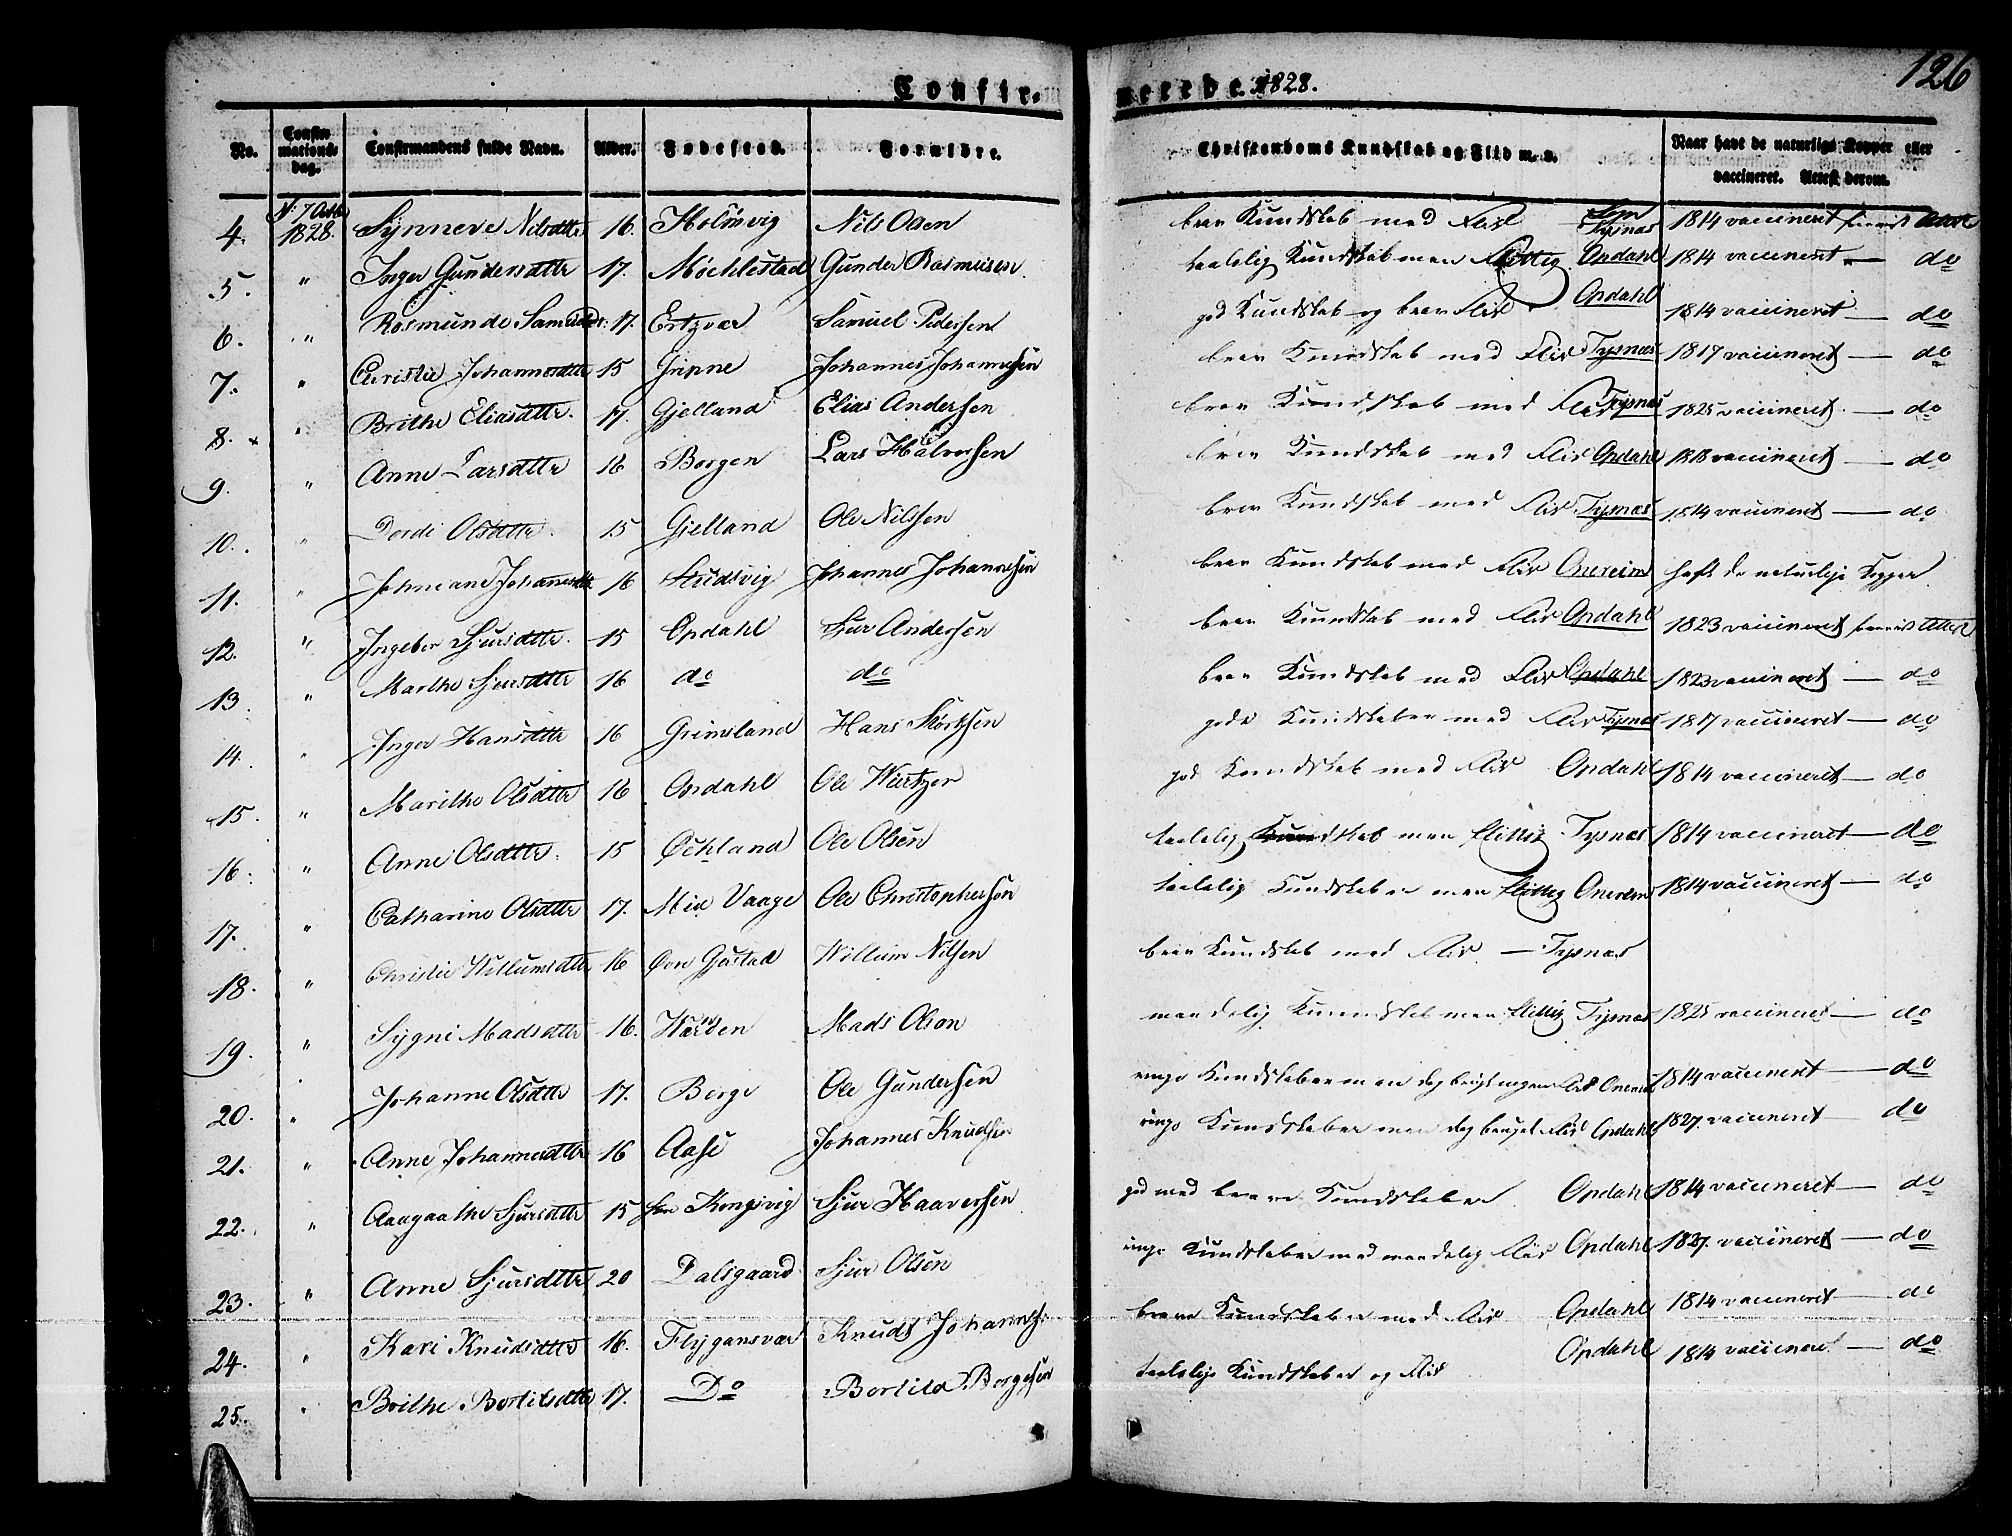 126
Confir- merede. 1828.
No. Confirmationsdag. Confirmandens fulde Navn. Alder. Fødested. Forældre. Christendoms Kundskab og Flid m. v. Naar havt de naturlige Kopper eller vaccineret. Attest derom.
4. 1828. Synneve Nilsdttr 16. Holmvig Nils Olsen brav Kundskab med Flid Tysnæs 1814 vaccineret
5. " Inger Gundersdttr 17. Møchlestad Gunder Rasmusen taalelig Kundskab men flittig Opdahl 1814 vaccineret — do
6. " Rosmunde 17. Ertzvær Samuel Pedersen god Kundskab og brav Flid Opdahl 1814 vaccineret — do
7. " Christie Johannesdttr 15 Gripne Johannes Johannesen brav Kundskab med Flid Tysnæs 1817 vaccineret — do
8. " Brithe Eliasdttr. 17. Gjelland Elias Andersen brav Kundskab med Flid Tysnæs 1825 vaccineret — do
9. " Anne Larsdttr 16 Borgen Lars Halvorsen brav Kundskab med Flid Opdahl 1818 vaccineret — do
10. " Dordi Olsdttr. 15 Gjelland Ole Nilssen brav Kundskab med Flid Tysnæs 1814 vaccineret — do
11. " Johannesdttr 16 Johannes Johannesen brav Kundskab med Flid Onereim haft de naturlige Kopper
12. " Ingebor Sjursdttr. 15 Opdahl Sjur Andersen brav Kundskab med Flid Opdahl 1823 vaccineret
13. " Marthe Sjursdttr 16 do do brav Kundskab med Flid Opdahl 1823 vaccineret — do
14. " Inger Hansdttr 16 Grimsland Hans gode Kundskaber med Flid Tysnes 1817 vaccineret — do
15. " Marithe Olsdttr 16 Opdahl Ole Wirtzer god Kundskab med Flid Opdahl 1814 vaccineret — do
16. " Anne Olsdttr. 15 Øchland Ole Olsen taalelig Kundskab men flittig Tysnæs 1814 vaccineret — do
17. " Catharine Olsdttr 17. Vaage Ole Christophersøn taalelig Kundskaber men flittig Onereim 1814 vaccineret — do
18. " Christie Willumsdttr 16 Willum Nilsen brav Kundskab med Flid — Tysnæs
19. " Sygni Madsdttr 16. Mads Olson maadelig Kundskab men flittig Tysnæs 1825 vaccineret — do
20. " Johanne Olsdttr 17. Berge Ole Gundersen ringe Kundskaber men dog Flid Onereim 1814 vaccineret — do
21. " Anne Johannesdttr 16 Aase Johannes Knudsen ringe Kundskaber men dog Flid Opdahl 1827. vaccineret — do
22. " Aaagaathe Sjursdttr 15 Kongsvig Sjur Haaversen god med brave Kundskaber Opdahl 1814 vaccineret — do
23. " Anne Sjursdttr 20 Dalsgaard Sjur Olsen ringe Kundskaber med maadelig Flid Opdahl 1827. vaccineret — do
24. " Kari Knudsdttr 16. Flygansvær Knud Johannes: brave Kundskaber med Flid Opdahl 1814 vaccineret — do
25. " Brithe Bertilsdttr 17. Do taalelige Kundskaber og Flid Opdahl 1814 vaccineret — do